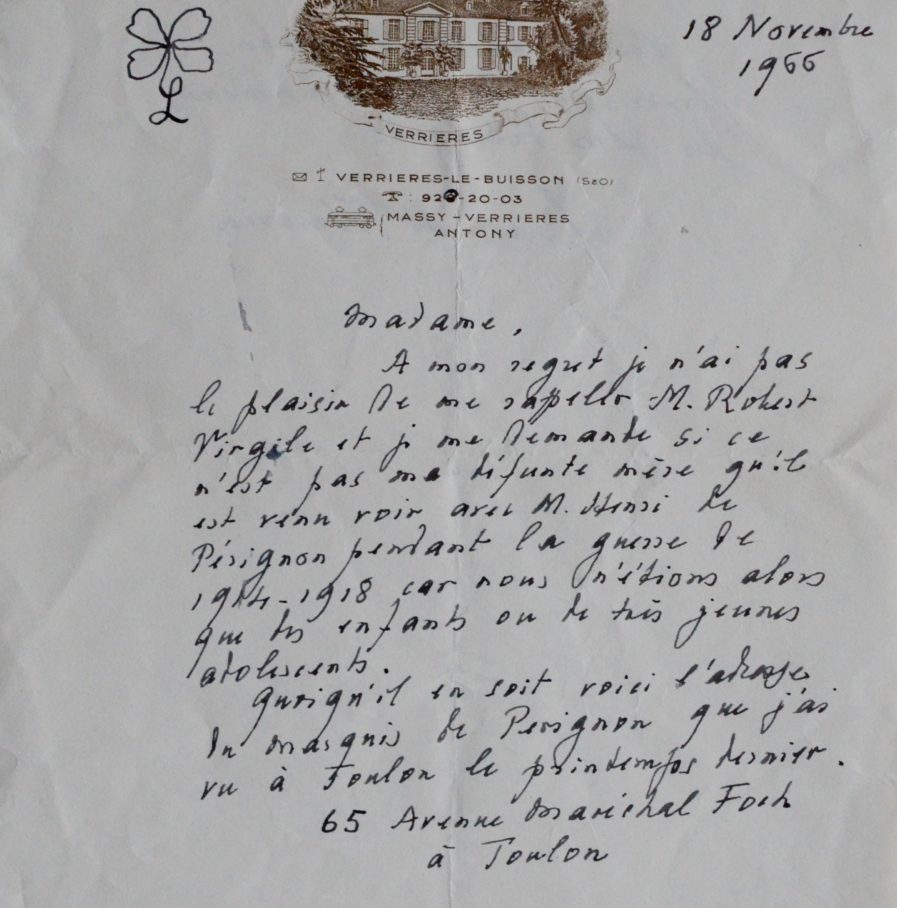 18 Novembre
1966
L
VERRIERES
VERRIERES-LE-BUISSON (S&O)
: 920-20-03
MASSY-VERRIERES
ANTONY
Madame,
A mon regret je n'ai pas
le plaisir de me rapeller M. Robert
Virgile et je me demande si ce
n'est pas ma défunte mère qu'il
est venu voir avec M. Henri de
Pérignon pendant la guerre de
1914-1918 car nous n'étions alors
que des enfants ou de très jeunes
adolescents.
Quoiqu'il en soit voici l'adresse
du marquis de Perignon que j'ai
vu à Toulon le printemps dernier.
65 Avenue Maréchal Foch
à Toulon